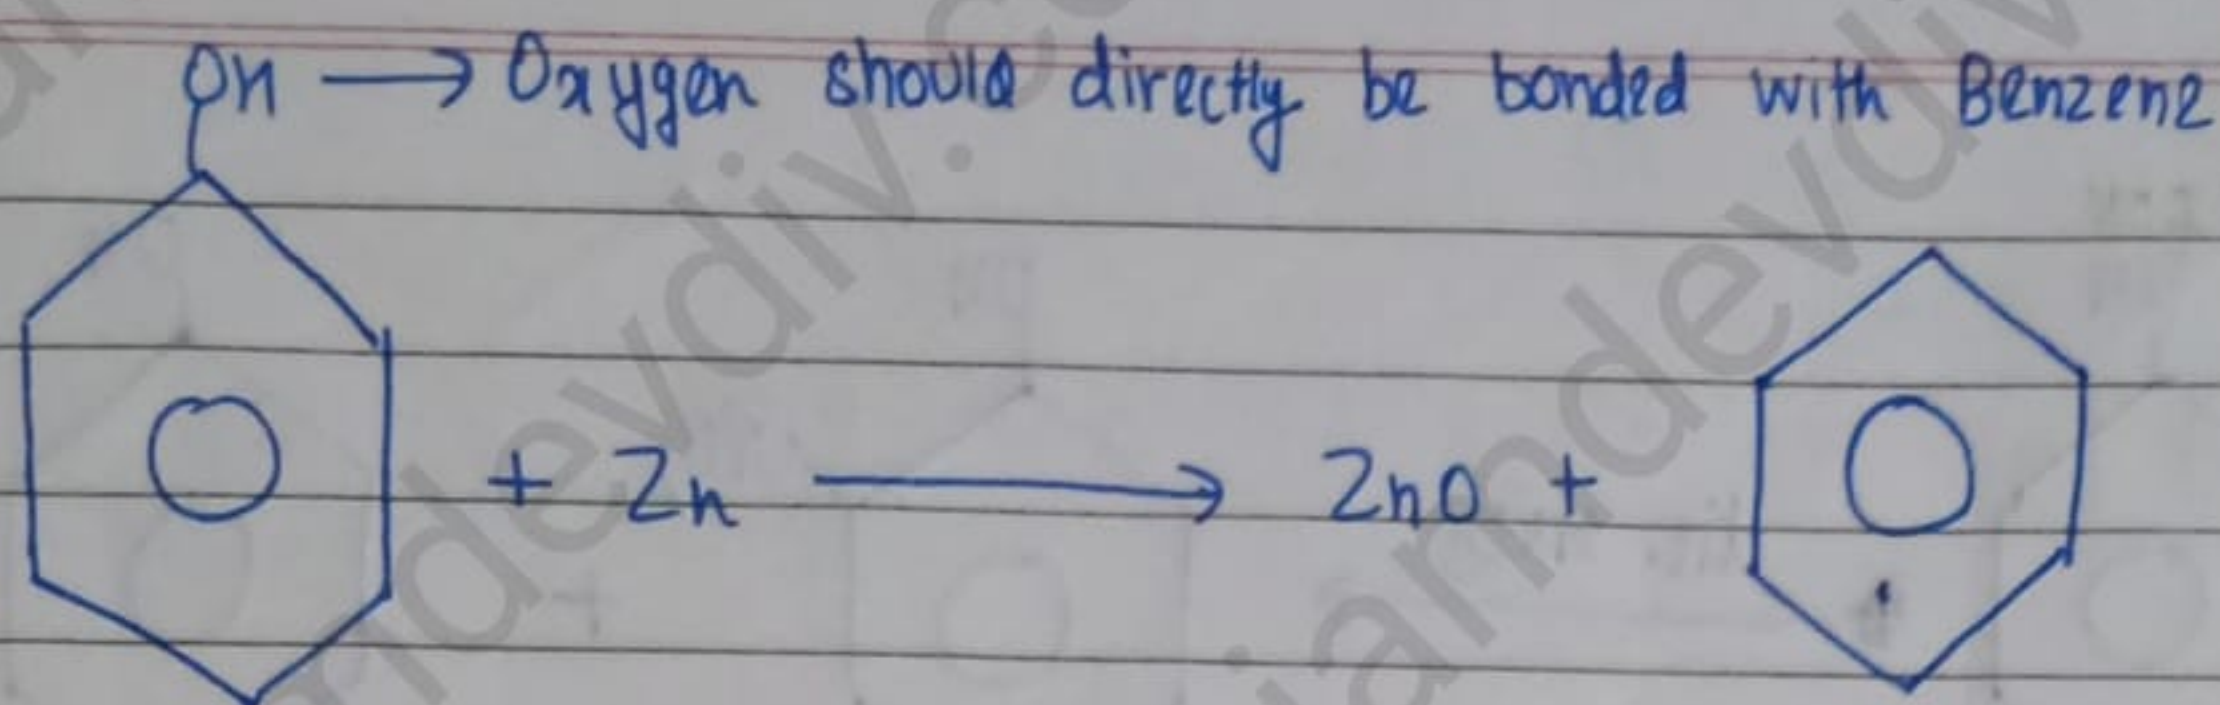 OH → Oxygen should directly be bonded with Benzene
+ Zn → ZnO +